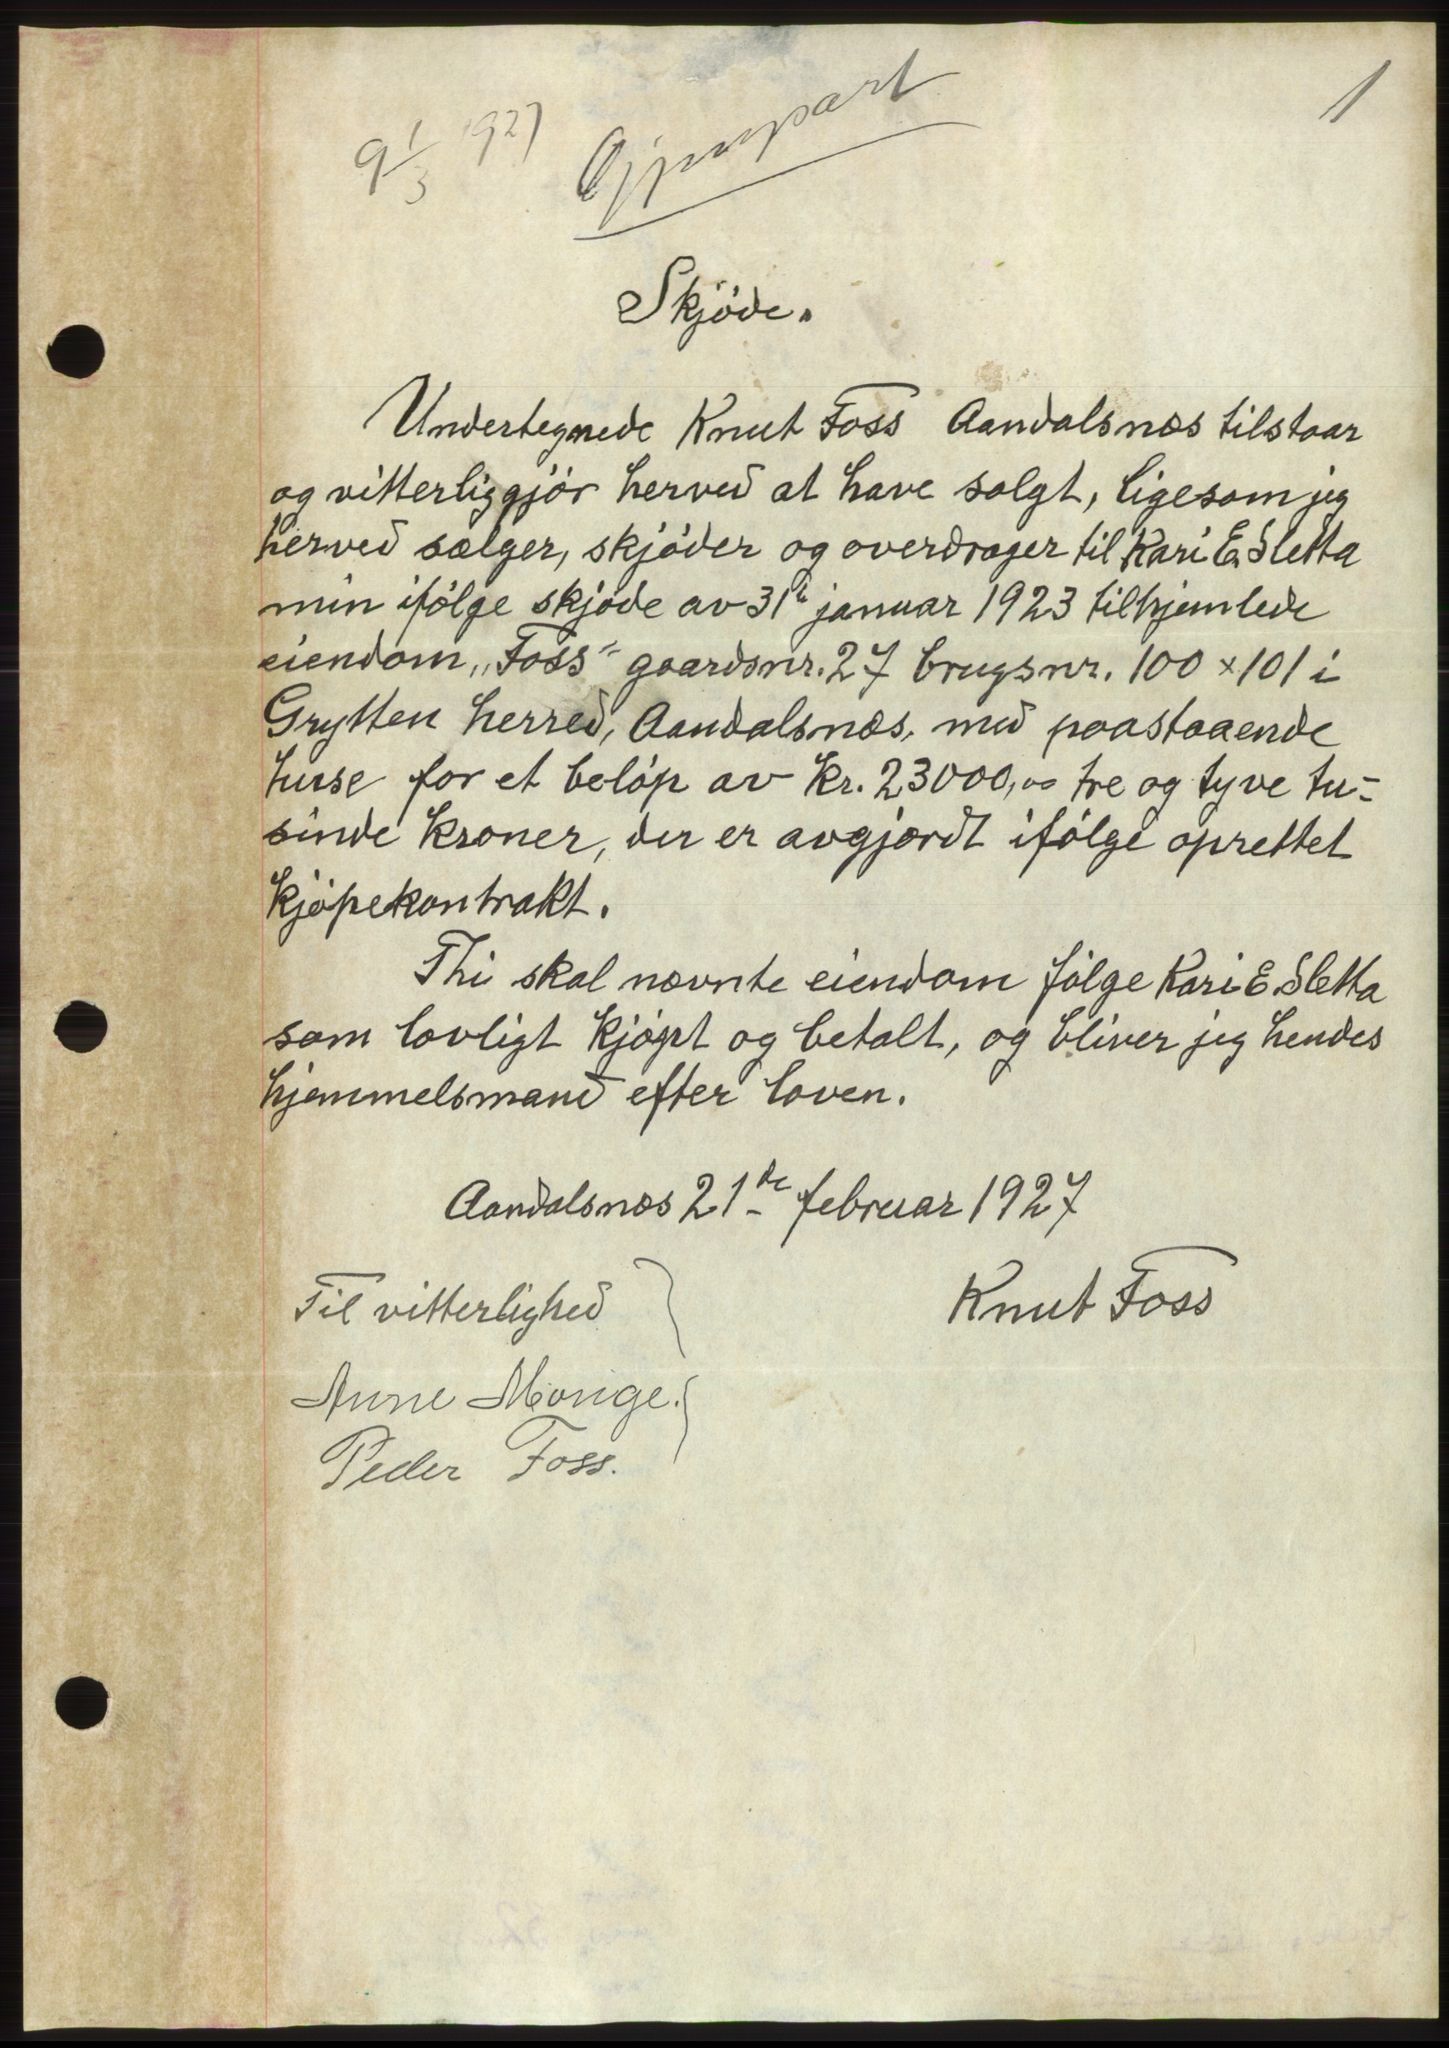 1
9 1/3 1927
Gjenpart
Skjöde.
Undertegnede Knut Foss Aandalsnæs tilstaar
og vitterliggjör herved at have solgt, ligesom jeg
herved sælger, skjöder og overdrager til Kari E. Sletta
min ifölge skjöde av 31te januar 1923 tilhjemlede
eiendom „Foss" gaardsnr. 27 brugsnr. 100 × 101 i
Grytten herred, Aandalsnæs, med paastaaende
huse for et belöp av kr. 23000,00 tre og tyve tu-
sinde kroner, der er avgjordt ifölge oprettet
kjöpekontrakt.
Thi skal nævnte eiendom fölge Kari E. Sletta
som lovligt kjöpt og betalt, og bliver jeg hendes
hjemmelsmand efter loven.
Aandalsnæs 21de februar 1927
Knut Foss
Til vitterlighed
Anne Monge.
Peder Foss.